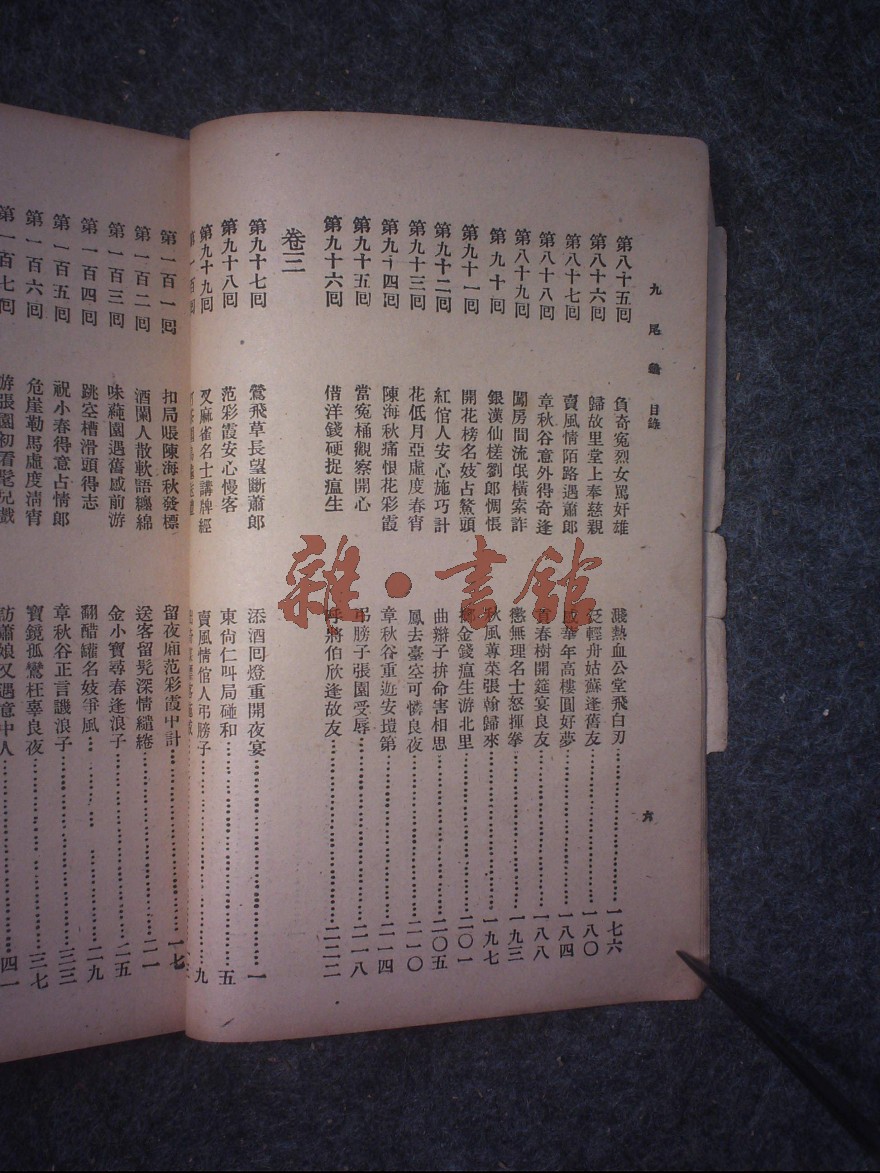 九尾龜 目錄
六
第八十五回 負奇寃烈女罵奸雄 濺熱血公堂飛白刃 一七六
第八十六回 歸故里堂上奉慈親 泛輕舟姑蘇逢舊友 一八〇
第八十七回 賣風情陌路遇蕭郎 華年高樓圓好夢 一八四
第八十八回 章秋谷意外得奇逢 春樹開筵宴良友 一八八
第八十九回 闖房間流氓橫索詐 懲無理名士怒揮拳 一九三
第九十回 銀漢仙槎劉郎惆悵 秋風蓴菜張翰歸來 一九七
第九十一回 開花榜名妓占鰲頭 擲金錢瘟生游北里 二〇一
第九十二回 紅倌人安心施巧計 曲辮子拚命害相思 二〇五
第九十三回 花低月亞虛度春宵 鳳去臺空可憐良夜 二一〇
第九十四回 陳海秋痛恨花彩霞 章秋谷重遊安塏第 二一四
第九十五回 當寃桶觀察開心 弔膀子張園受辱 二一八
第九十六回 借洋錢硬捉瘟生 將伯欣逢故友 二二二
卷三
第九十七回 鶯飛草長望斷蕭郎 添酒回燈重開夜宴 一
第九十八回 范彩霞安心慢客 東尙仁叫局碰和 五
第九十九回 叉麻雀名士講牌經 賣風情倌人弔膀子 九
第一百一回 扣局賬陳海秋發標 留夜廂范彩霞中計 一七
第一百二回 酒闌人散軟語纏綿 送客留髠深情繾綣 二一
第一百三回 味蒓園遇舊感前游 金小寶尋春逢浪子 二五
第一百四回 跳空槽滑頭得志 翻醋罐名妓爭風 二九
第一百五回 祝小春得意占情郎 章秋谷正言譏浪子 三三
第一百六回 危崖勒馬虛度淸宵 寶鏡孤鸞枉辜良夜 三七
第一百七回 游張園初看髦兒戲 訪蕭娘又遇意中人 四一
雜·書館